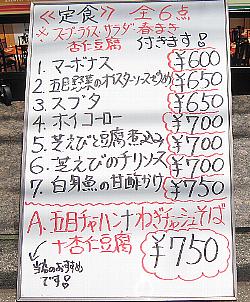 ≪定食≫ 全6点
※スープ・ライス・サラダ・春まき
杏仁豆腐 付きます!
1. マーボナス ¥600
2. 五目野菜のオイスターソース炒め ¥650
3. スブタ ¥650
4. ホイコーロー ¥700
5. 芝えびと豆腐煮込み ¥700
6. 芝えびのチリソース ¥700
7. 白身魚の甘酢かけ ¥750
A. 五目チャーハン ねぎチャーシューそば
+杏仁豆腐 ¥750
当店のおすすめ
です!